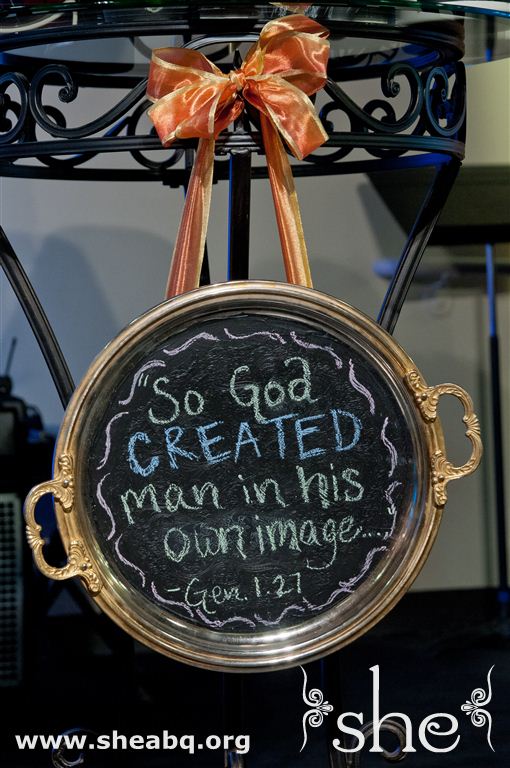 "So God
CREATED
man in his
own image....
-Gen. 1.27
www.sheabq.org
she